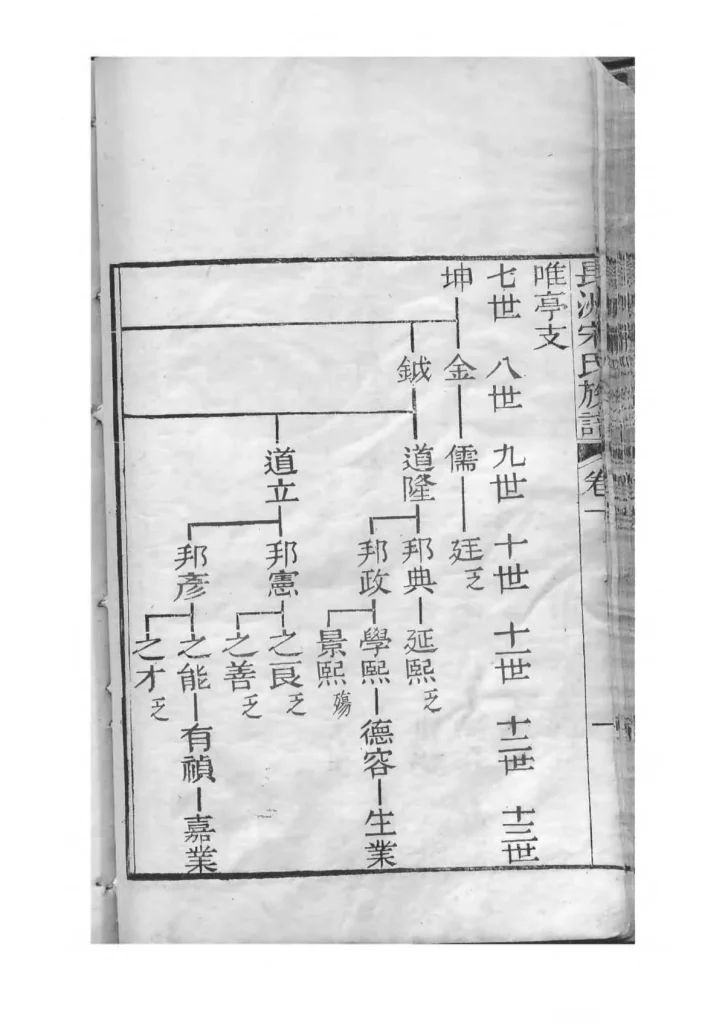 長洲宋氏族譜 卷一
一
唯亭支
七世 八世 九世 十世 十一世 十二世 十三世
坤 金 儒 廷乏
鉞 道隆 邦典 延熙乏
邦政 學熙 德容 生業
景熙殤
道立 邦憲 之良乏
之善乏
邦彥 之能 有禎 嘉業
之才乏